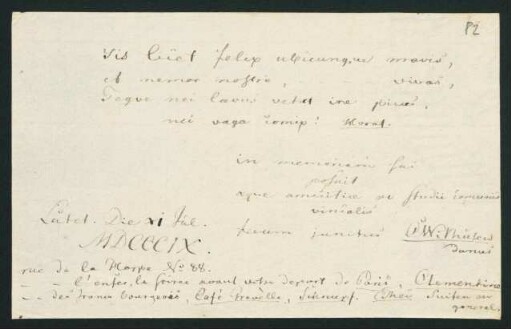 82
Sis licet felix ubicunque mavis,
et memor nostri, vivas,
Teque nec laevus vetet ire picus,
nec vaga cornix! Horat.
in memoriam sui
posuit
atque amicitiae ac studii communis
vinculis
tecum junctus
Danus
Lutet. Die XI Jul.
MDCCCIX
rue de la Harpe No 88.
- - l'enfer, la soirée avant votre depart de Paris, Clementine
- des francs bourgeois, Café
general.